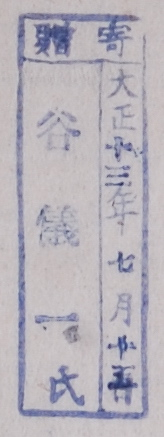 寄贈
大正十三年七月廿五日
谷儀一氏